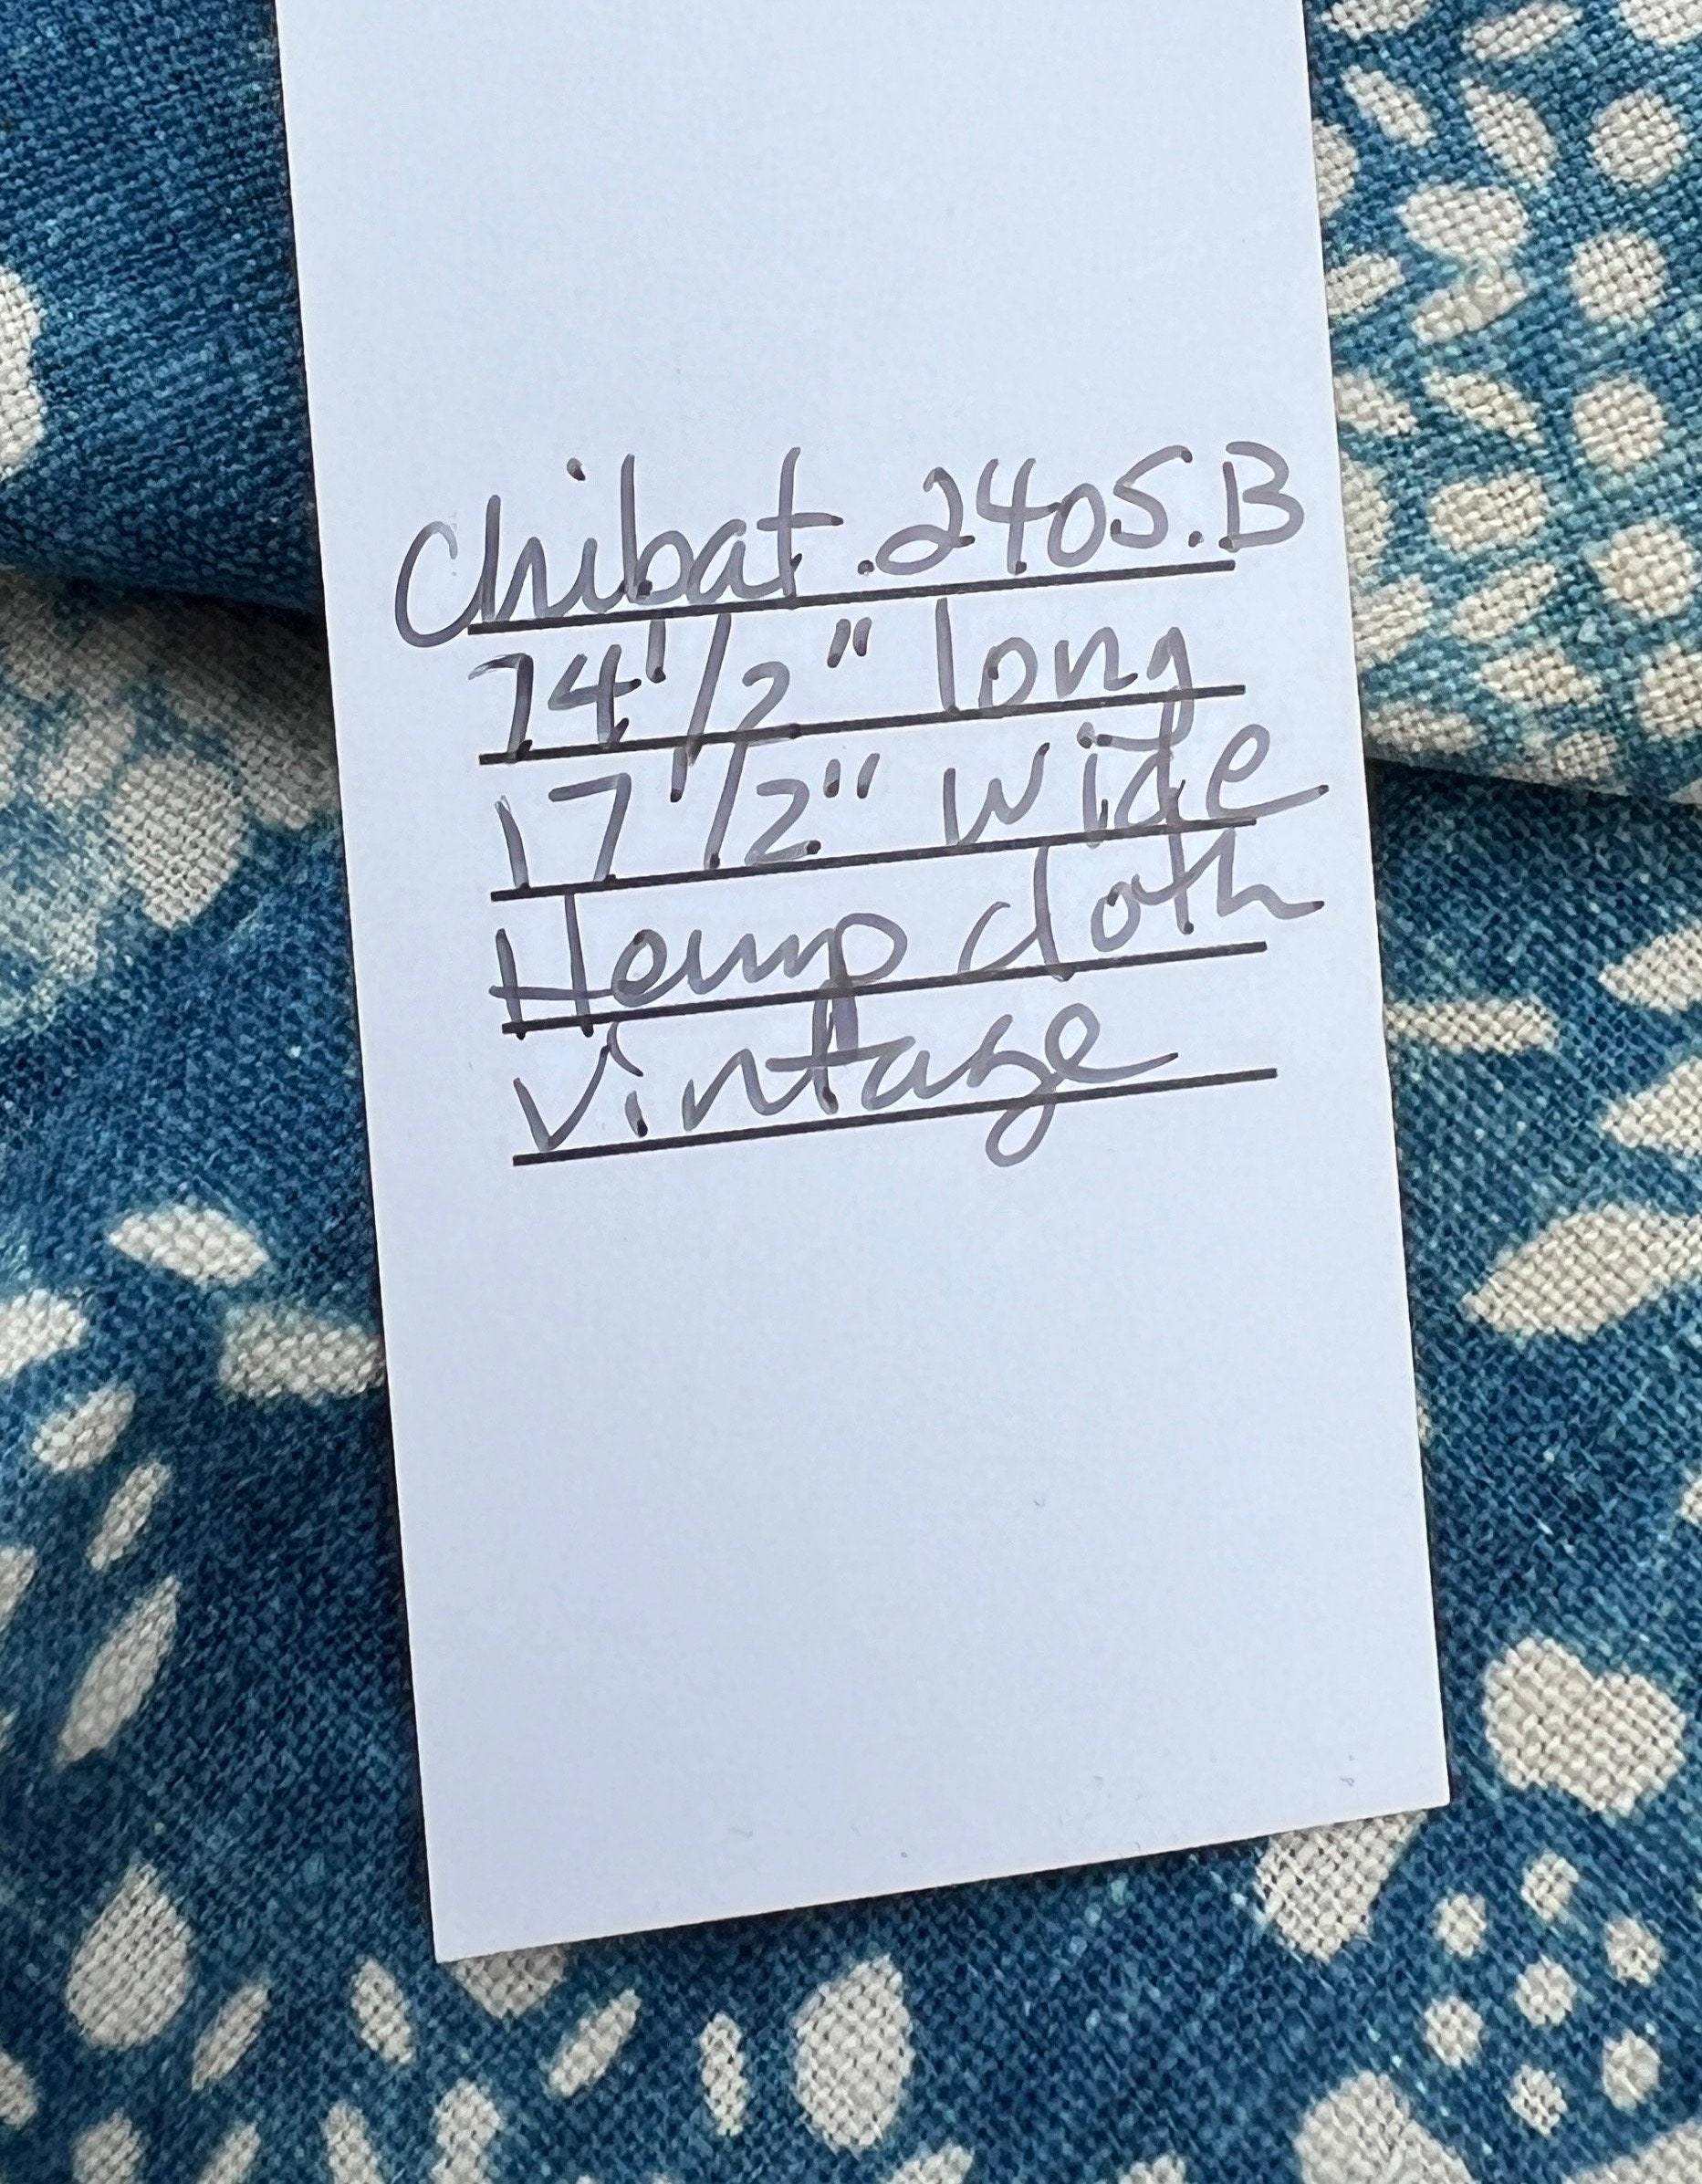 Chibat.2405.B
74 1/2" long
17 1/2" wide
Hemp cloth
Vintage